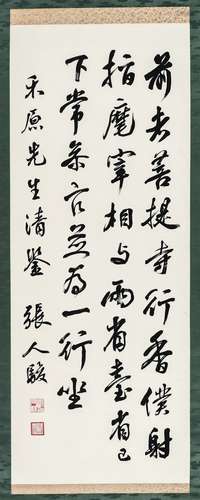 前者菩提寺行香僕射
指麾宰相與兩省臺省已
下常參官並為一行坐
禾原先生清鑒 張人駿